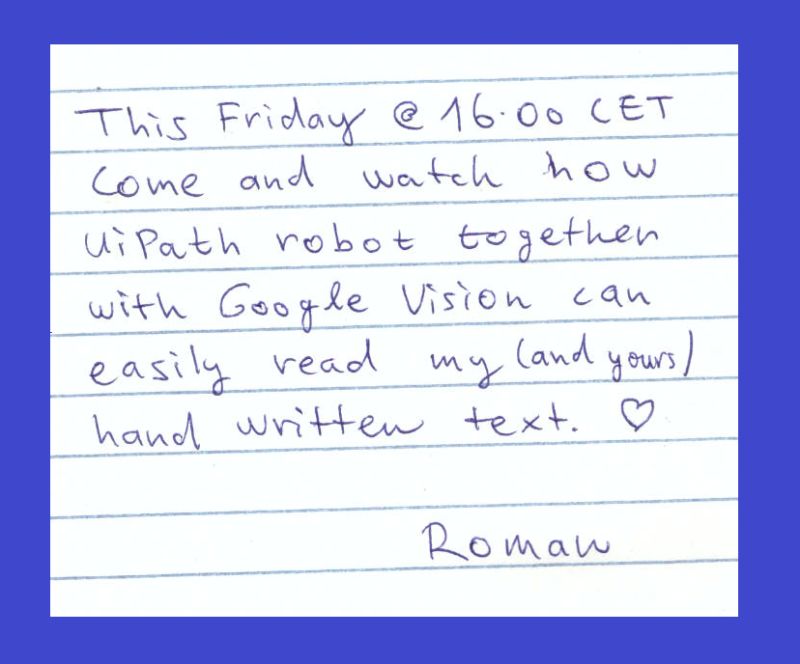 This Friday @ 16.00 CET
Come and watch how
UiPath robot together
with Google Vision can
easily read my (and yours)
hand written text. ♡
Roman